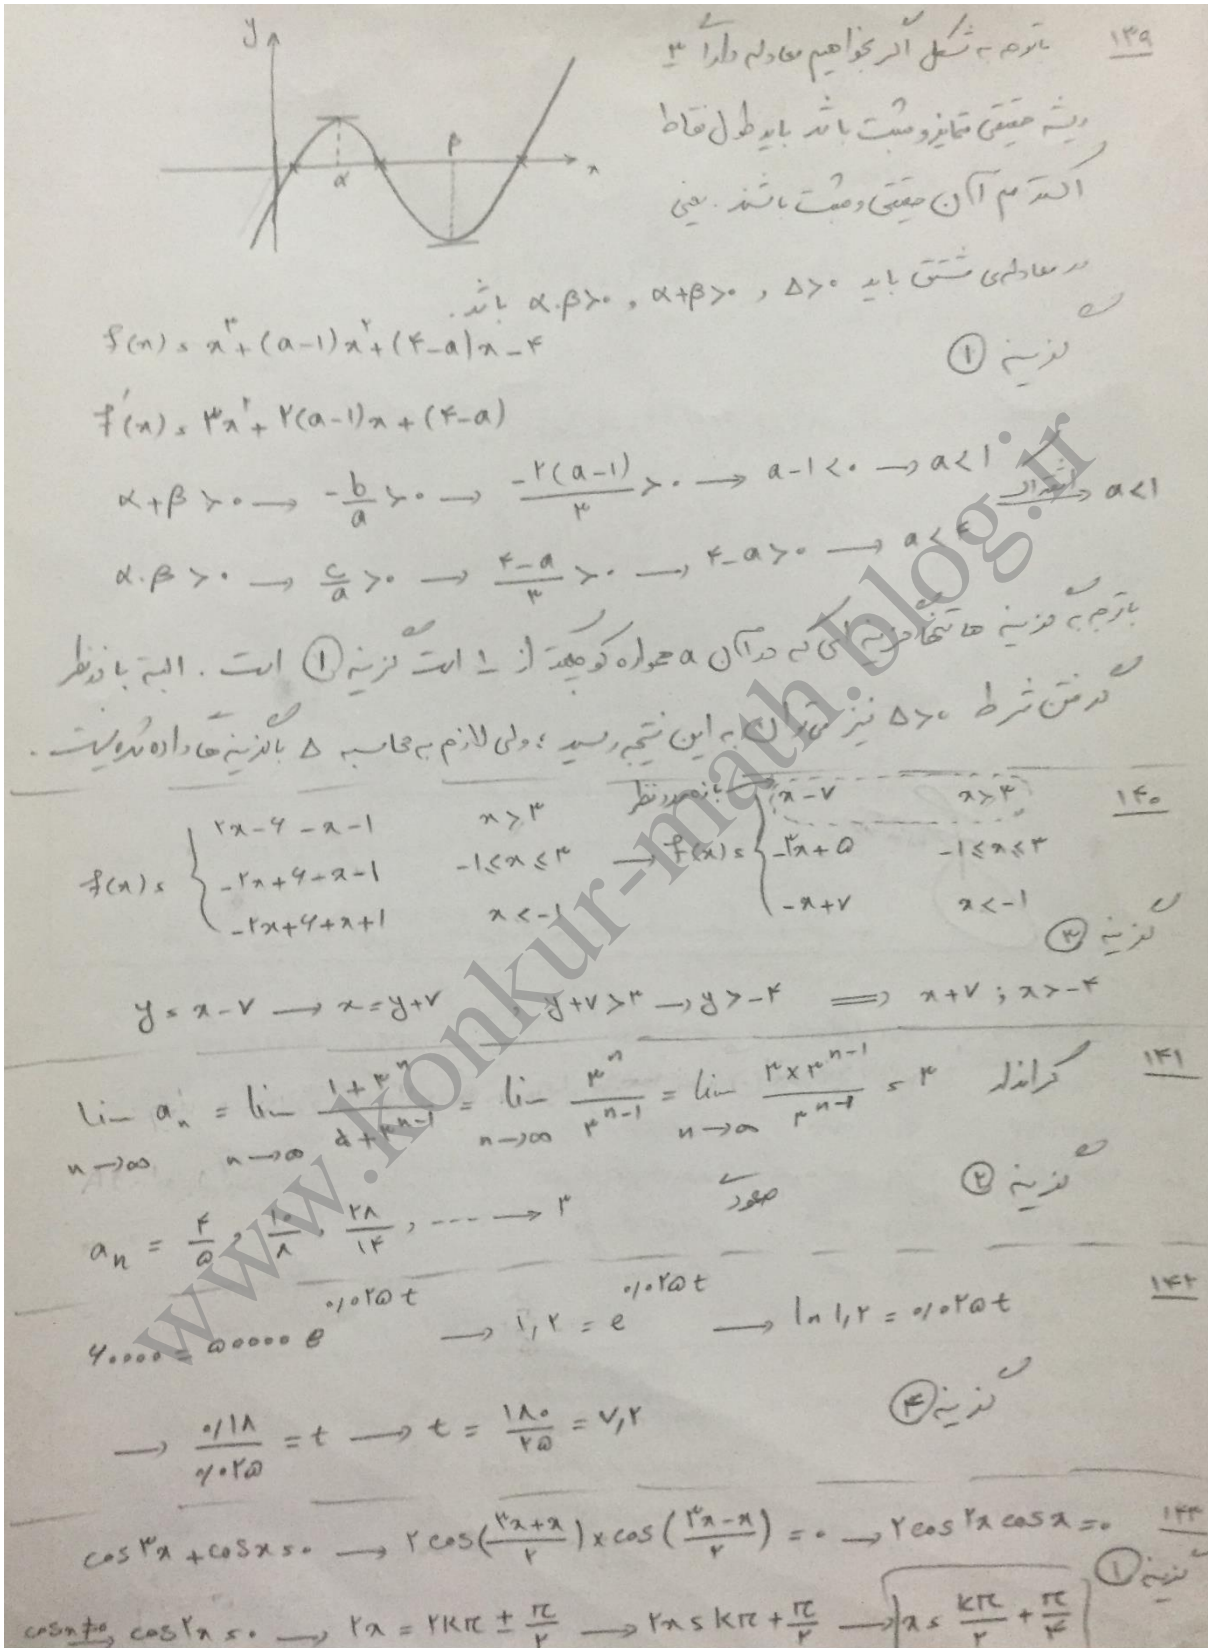 ۱۳۹
باتوجه به شکل اگر بخواهیم معادله دارای ۳
ریشه حقیقی متمایز و مثبت باشد باید طول نقاط
اکسترمم آن حقیقی و مثبت باشند. یعنی
در معادله‌ی مشتق باید Δ>۰ , α+β>۰ , α.β>۰ باشد.
y
α
β
x
گزینه ۱
f(x) = x^۳ + (a-1)x^۲ + (۴-a)x - ۴
f'(x) = ۳x^۲ + ۲(a-1)x + (۴-a)
α+β>۰ → -b/a >۰ → -۲(a-1)/۳ >۰ → a-1<۰ → a<1 اشتراک → a<1
α.β>۰ → c/a >۰ → (۴-a)/۳ >۰ → ۴-a>۰ → a<۴
باتوجه به گزینه ها تنها گزینه ای که در آن a همواره کوچکتر از ۱ است گزینه ۱ است. البته با در نظر
گرفتن شرط Δ>۰ نیز می توان به این نتیجه رسید؛ ولی لازم به محاسبه Δ با گزینه های داده شده نیست.
۱۴۰
f(x) = { ۲x-۶-x-1 x>۳ → f(x) = { x-۷ x>۳ بازه مورد نظر
-۲x+۶-x-1 -1≤x≤۳ -۳x+۵ -1≤x≤۳
-۲x+۶+x+1 x<-1 -x+۷ x<-1
گزینه ۳
y = x-۷ → x = y+۷ , y+۷>۳ → y>-۴ ⟹ x+۷ ; x>-۴
۱۴۱
lim n→∞ a_n = lim n→∞ (1+۳^n)/(۵+۳^(n-1)) = lim n→∞ ۳^n/۳^(n-1) = lim n→∞ (۳×۳^(n-1))/۳^(n-1) = ۳ کراندار
گزینه ۲
a_n = ۴/۵ , ۱۰/۸ , ۲۸/۱۴ , .... → ۳ صعودی
۱۴۲
۶۰۰۰۰ = ۵۰۰۰۰ e^(۰/۰۲۵t) → ۱,۲ = e^(۰/۰۲۵t) → ln ۱,۲ = ۰/۰۲۵t
گزینه ۴
→ ۰/۱۸ / ۰/۰۲۵ = t → t = ۱۸۰/۲۵ = ۷,۲
۱۴۳
cos۳x + cosx = ۰ → ۲cos((۳x+x)/۲) × cos((۳x-x)/۲) = ۰ → ۲cos۲x cosx = ۰
گزینه ۱
cosx≠۰ → cos۲x = ۰ → ۲x = ۲kπ ± π/۲ → ۲x = kπ + π/۲ → x = kπ/۲ + π/۴
www.konkur-math.blog.ir